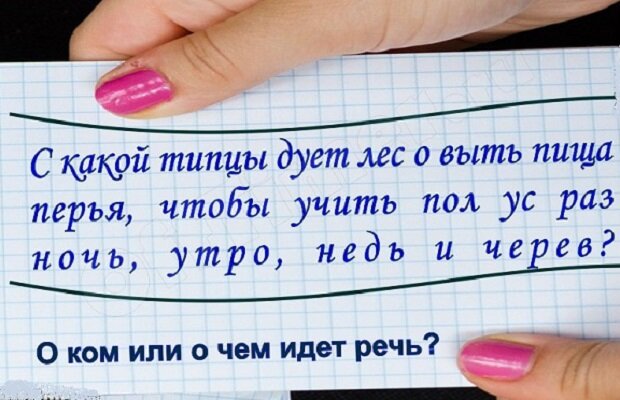 С какой типцы дует лес о выть пища
перья, чтобы учить пол ус раз
ночь, утро, недь и черев?
О ком или о чем идет речь?